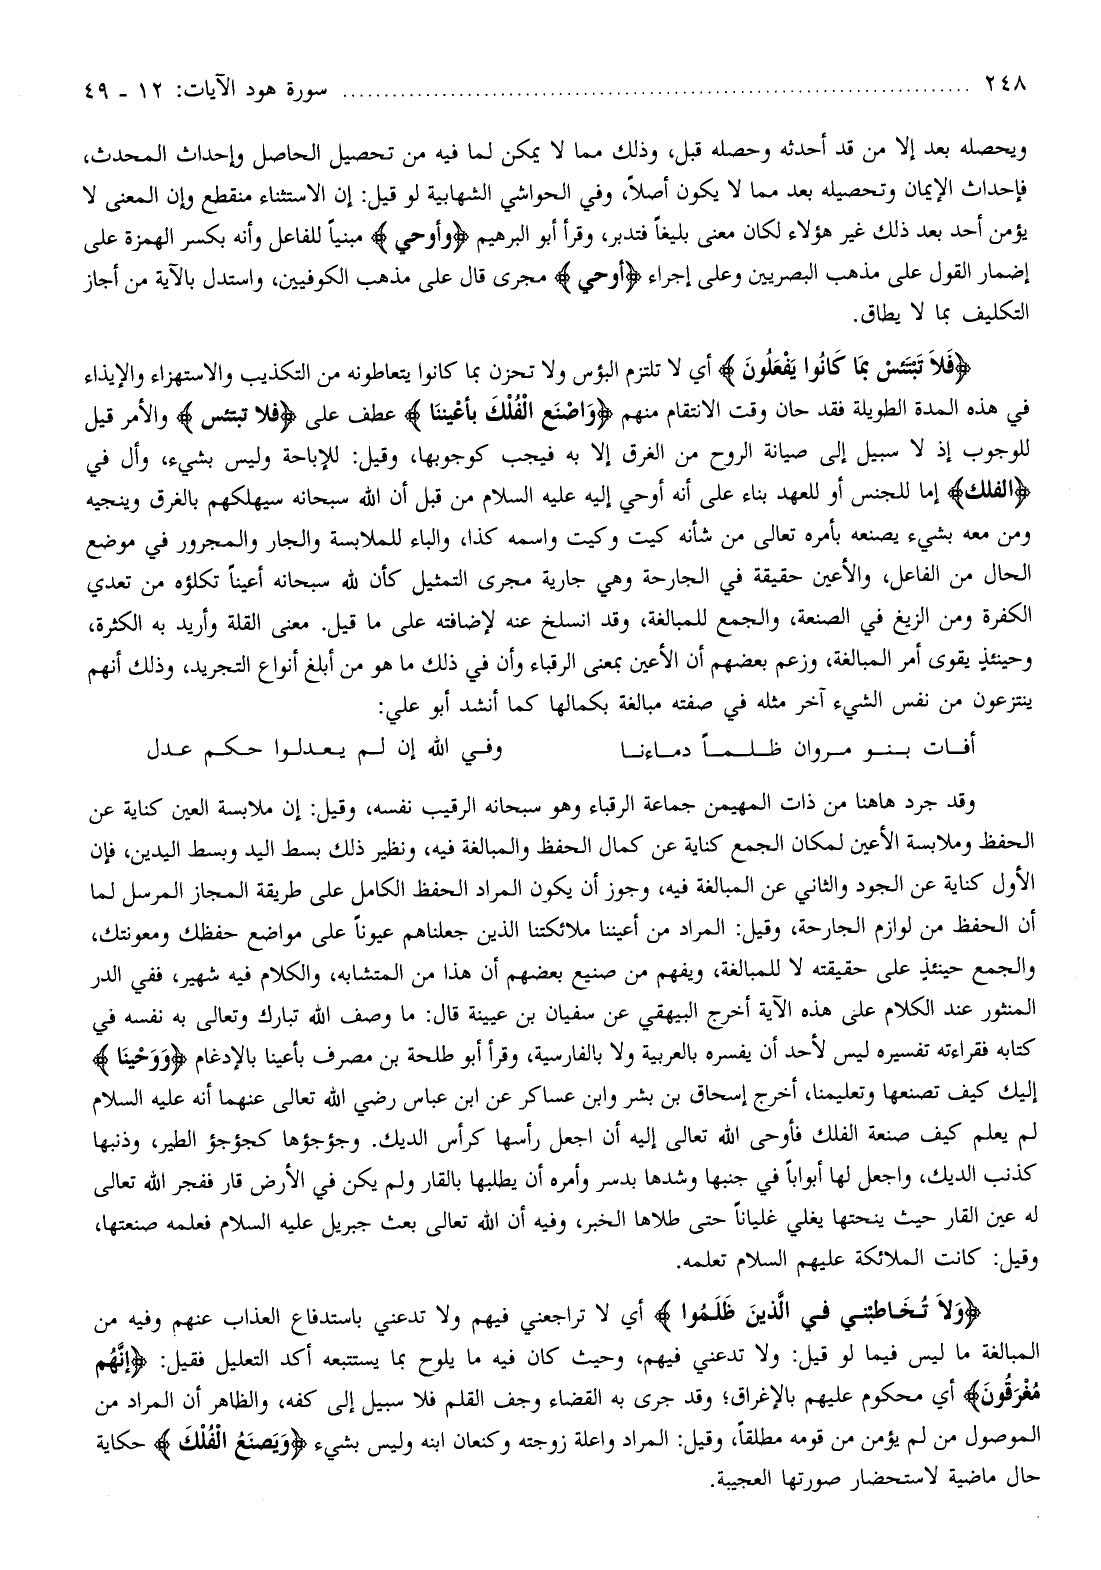 ٢٤٨ ........................................................................ سورة هود الآيات: ١٢ - ٤٩
ويحصله بعد إلا من قد أحدثه وحصله قبل، وذلك مما لا يمكن لما فيه من تحصيل الحاصل وإحداث المحدث،
فإحداث الإيمان وتحصيله بعد مما لا يكون أصلاً، وفي الحواشي الشهابية لو قيل: إن الاستثناء منقطع وإن المعنى لا
يؤمن أحد بعد ذلك غير هؤلاء لكان معنى بليغاً فتدبر، وقرأ أبو البرهيم ﴿وأوحي﴾ مبنياً للفاعل وأنه بكسر الهمزة على
إضمار القول على مذهب البصريين وعلى إجراء ﴿أوحي﴾ مجرى قال على مذهب الكوفيين، واستدل بالآية من أجاز
التكليف بما لا يطاق.
﴿فَلاَ تَبْتَئسْ بمَا كَانُوا يَفْعَلُونَ﴾ أي لا تلتزم البؤس ولا تحزن بما كانوا يتعاطونه من التكذيب والاستهزاء والإيذاء
في هذه المدة الطويلة فقد حان وقت الانتقام منهم ﴿وَاصْنَع الْفُلْكَ بأَعْيننَا﴾ عطف على ﴿فلا تبتئس﴾ والأمر قيل
للوجوب إذ لا سبيل إلى صيانة الروح من الغرق إلا به فيجب كوجوبها، وقيل: للإباحة وليس بشيء، وأل في
﴿الفلك﴾ إما للجنس أو للعهد بناء على أنه أوحي إليه عليه السلام من قبل أن الله سبحانه سيهلكهم بالغرق وينجيه
ومن معه بشيء يصنعه بأمره تعالى من شأنه كيت وكيت واسمه كذا، والباء للملابسة والجار والمجرور في موضع
الحال من الفاعل، والأعين حقيقة في الجارحة وهي جارية مجرى التمثيل كأن لله سبحانه أعيناً تكلؤه من تعدي
الكفرة ومن الزيغ في الصنعة، والجمع للمبالغة، وقد انسلخ عنه لإضافته على ما قيل. معنى القلة وأريد به الكثرة،
وحينئذٍ يقوى أمر المبالغة، وزعم بعضهم أن الأعين بمعنى الرقباء وأن في ذلك ما هو من أبلغ أنواع التجريد، وذلك أنهم
ينتزعون من نفس الشيء آخر مثله في صفته مبالغة بكمالها كما أنشد أبو علي:
أفـات بـنـو مـروان ظـلـمـاً دمـاءنـا     وفـي الله إن لـم يـعـدلـوا حـكـم عـدل
وقد جرد هاهنا من ذات المهيمن جماعة الرقباء وهو سبحانه الرقيب نفسه، وقيل: إن ملابسة العين كناية عن
الحفظ وملابسة الأعين لمكان الجمع كناية عن كمال الحفظ والمبالغة فيه، ونظير ذلك بسط اليد وبسط اليدين، فإن
الأول كناية عن الجود والثاني عن المبالغة فيه، وجوز أن يكون المراد الحفظ الكامل على طريقة المجاز المرسل لما
أن الحفظ من لوازم الجارحة، وقيل: المراد من أعيننا ملائكتنا الذين جعلناهم عيوناً على مواضع حفظك ومعونتك،
والجمع حينئذٍ على حقيقته لا للمبالغة، ويفهم من صنيع بعضهم أن هذا من المتشابه، والكلام فيه شهير، ففي الدر
المنثور عند الكلام على هذه الآية أخرج البيهقي عن سفيان بن عيينة قال: ما وصف الله تبارك وتعالى به نفسه في
كتابه فقراءته تفسيره ليس لأحد أن يفسره بالعربية ولا بالفارسية، وقرأ أبو طلحة بن مصرف بأعينا بالإدغام ﴿وَوَحْينَا﴾
إليك كيف تصنعها وتعليمنا، أخرج إسحاق بن بشر وابن عساكر عن ابن عباس رضي الله تعالى عنهما أنه عليه السلام
لم يعلم كيف صنعة الفلك فأوحى الله تعالى إليه أن اجعل رأسها كرأس الديك. وجؤجؤها كجؤجؤ الطير، وذنبها
كذنب الديك، واجعل لها أبواباً في جنبها وشدها بدسر وأمره أن يطلبها بالقار ولم يكن في الأرض قار ففجر الله تعالى
له عين القار حيث ينحتها يغلي غلياناً حتى طلاها الخبر، وفيه أن الله تعالى بعث جبريل عليه السلام فعلمه صنعتها،
وقيل: كانت الملائكة عليهم السلام تعلمه.
﴿وَلاَ تُخَاطبْني في الَّذينَ ظَلَمُوا﴾ أي لا تراجعني فيهم ولا تدعني باستدفاع العذاب عنهم وفيه من
المبالغة ما ليس فيما لو قيل: ولا تدعني فيهم، وحيث كان فيه ما يلوح بما يستتبعه أكد التعليل فقيل: ﴿إنَّهُم
مُغْرَقُونَ﴾ أي محكوم عليهم بالإغراق؛ وقد جرى به القضاء وجف القلم فلا سبيل إلى كفه، والظاهر أن المراد من
الموصول من لم يؤمن من قومه مطلقاً، وقيل: المراد واعلة زوجته وكنعان ابنه وليس بشيء ﴿وَيَصنَعُ الْفُلْكَ﴾ حكاية
حال ماضية لاستحضار صورتها العجيبة.